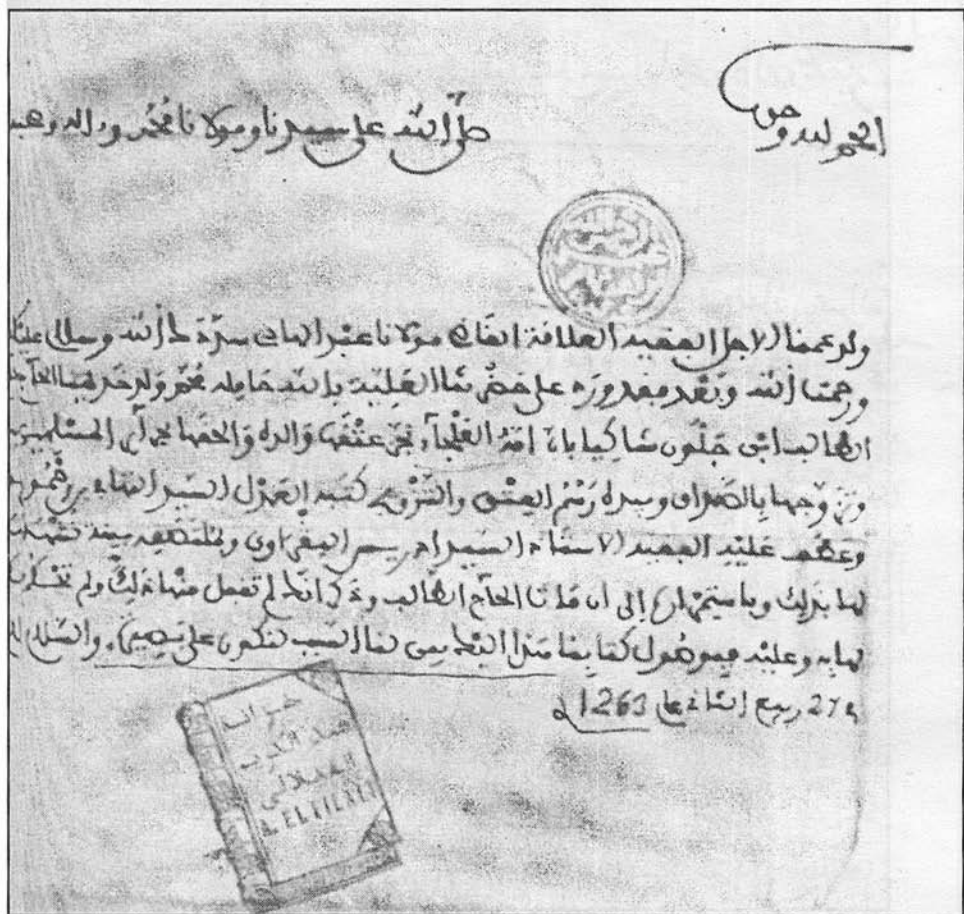 الحمد لله وحده
صلى الله على سيدنا ومولانا محمد وءاله وصحبه
ولد عمنا الاجل الفقيه العلامة القاضي مولانا عبد الهادي سددك الله وسلام عليك
ورحمت الله وبعد فقد ورد على حضرتنا العلية بالله حامله محمد ولد خديمنا الحاج
الطالب ابن جلون شاكيا بان امة نجز عتقها والده والحقها بحرائر المسلمين
وتزوجها بالصداق وبيده رسم العتق والتزويج كتبه العدل السيد التهامي
وعطف عليه الفقيه الاستاذ السيد ادريس البقراوي
لها بذلك وباستمرارها الى ان مات الحاج الطالب وذكر انها لم تفعل منها ذلك ولم
لها به وعليه فبوصول كتابنا هذا اليك بين لنا السبب لنكون على بصيرة والسلام
في 27 ربيع الثاني عام 1263
خزانة
عبد
الفيلالي
A. EL FILALI